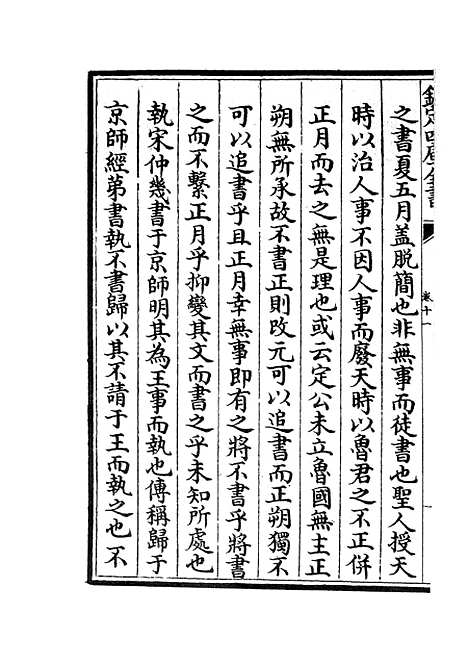 欽定四庫全書
卷十一
之書夏五月盖脱簡也非無事而徒書也聖人授天
時以治人事不因人事而廢天時以魯君之不正併
正月而去之無是理也或云定公未立魯國無主正
朔無所承故不書正則改元可以追書而正朔獨不
可以追書乎且正月幸無事即有之將不書乎將書
之而不繫正月乎抑變其文而書之乎未知所處也
執宋仲幾書于京師明其為王事而執也傳稱歸于
京師經第書執不書歸以其不請于王而執之也不